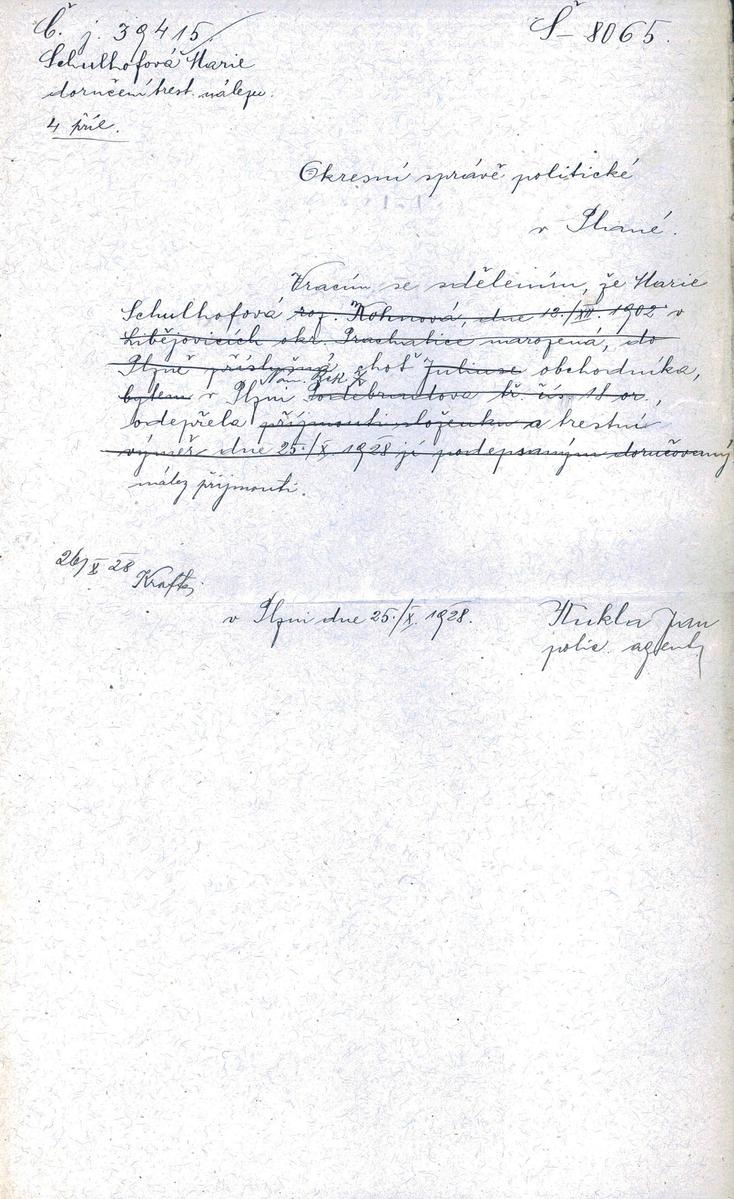 Č. j. 39415
Š – 8065.
Schulhofová Marie
doručení trest. nálezu.
4 příl.
Okresní správě politické
v Plané.
Vracím se sdělením, že Marie
Schulhofová roz. Kohnová, dne 12./XII. 1902 v
Libějovicích okr. Prachatice narozená, do
Plzně příslušná, choť Juliuse obchodníka,
bytem v Plzni Poděbradova tř. čís. 18 or.,
odepřela přijmouti složenku a trestní
výměr dne 25./X. 1928 jí podepsaným doručovaný
nález přijmouti.
26/X 28
v Plzni dne 25./X. 1928.
Kukla Jan
polic. agent